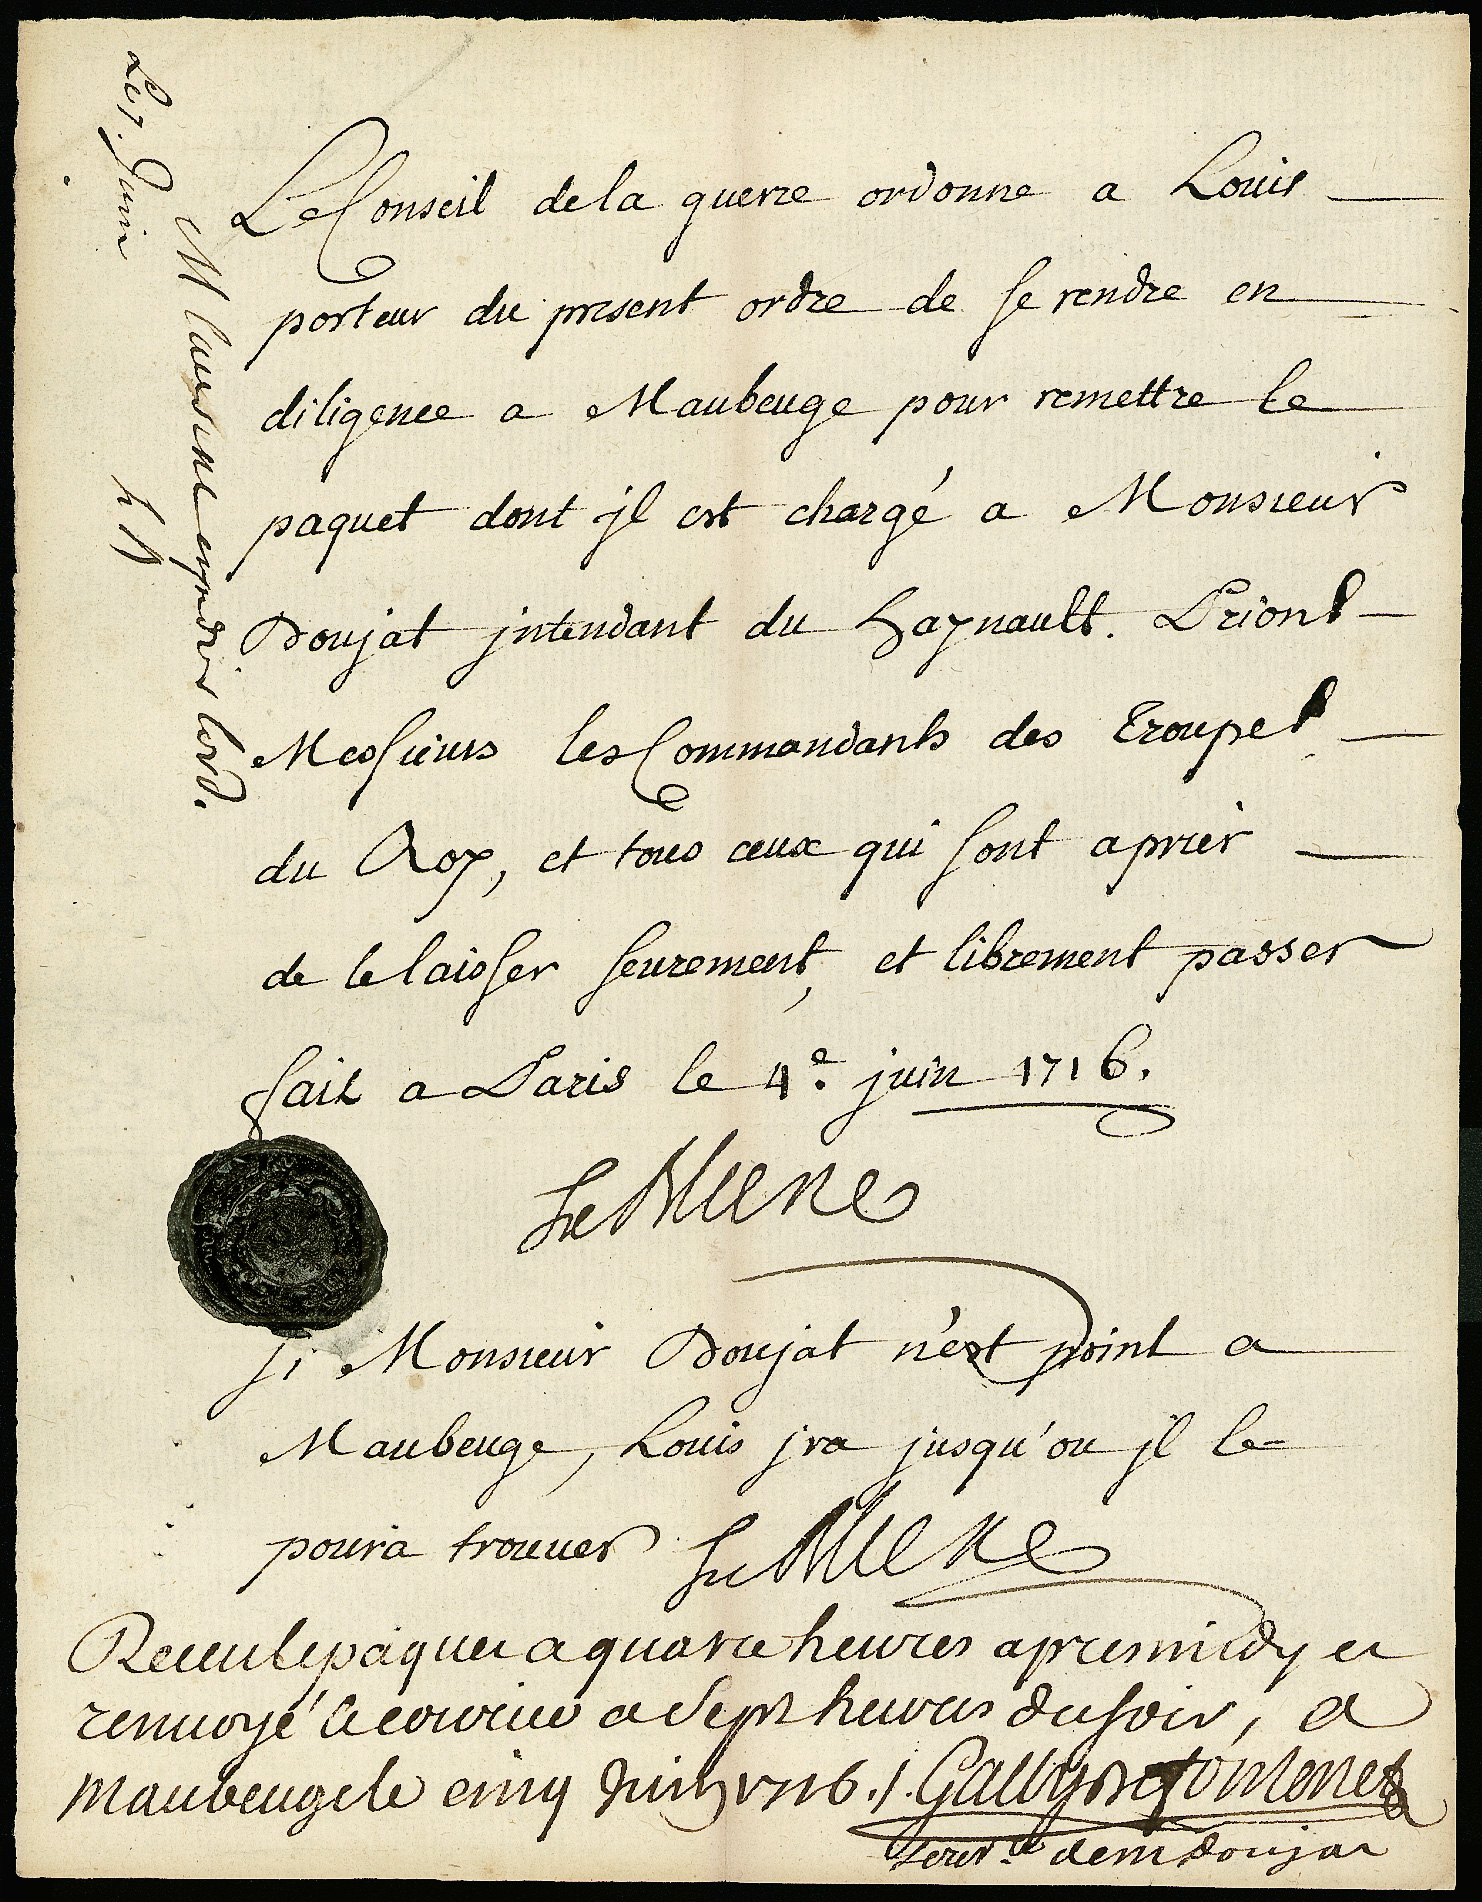 Le Conseil de la guerre ordonne a Louis
porteur du present ordre de se rendre en
diligence a Maubeuge pour remettre le
paquet dont jl est chargé a Monsieur
Doujat jntendant du haynault. Prions
Messieurs les Commandants des Troupes
du Roy, et tous ceux qui sont a prier
de le laisser seurement, et librement passer
fait a Paris le 4e. juin 1716.
Le Blanc
si Monsieur Doujat n'est point a
Maubeuge, Louis jra jusqu'ou jl le
poura trouver Le Blanc
Receu le paquet a quatre heures apres midy et
renvoyé le courier a sept heures du soir, a
Maubeuge le cinq Juin 1716 ./. Gallys de fontenet
secret.re de m doujat
Le 7. Juin
M